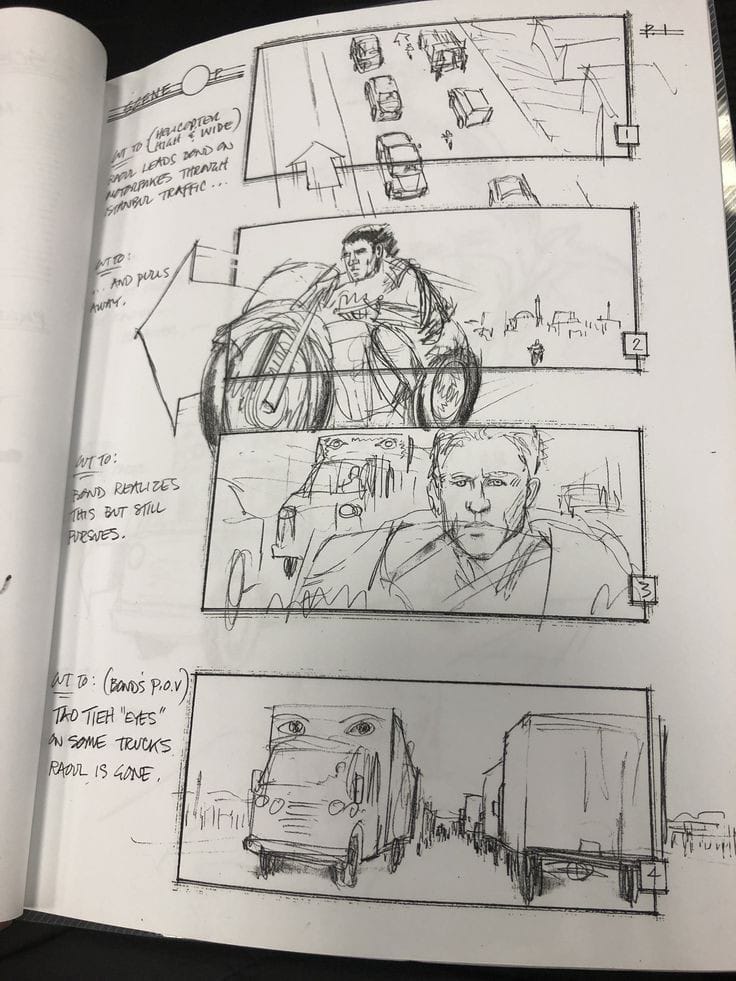 P. 1
SCENE P
CUT TO (HELICOPTER
HIGH & WIDE)
RAOUL LEADS BOND ON
MOTORBIKES THROUGH
ISTANBUL TRAFFIC...
1
CUT TO:
... AND PULLS
AWAY.
2
CUT TO:
BOND REALIZES
THIS BUT STILL
PURSUES.
3
CUT TO: (BOND'S P.O.V)
TAO TIEH "EYES"
ON SOME TRUCKS
RAOUL IS GONE.
4